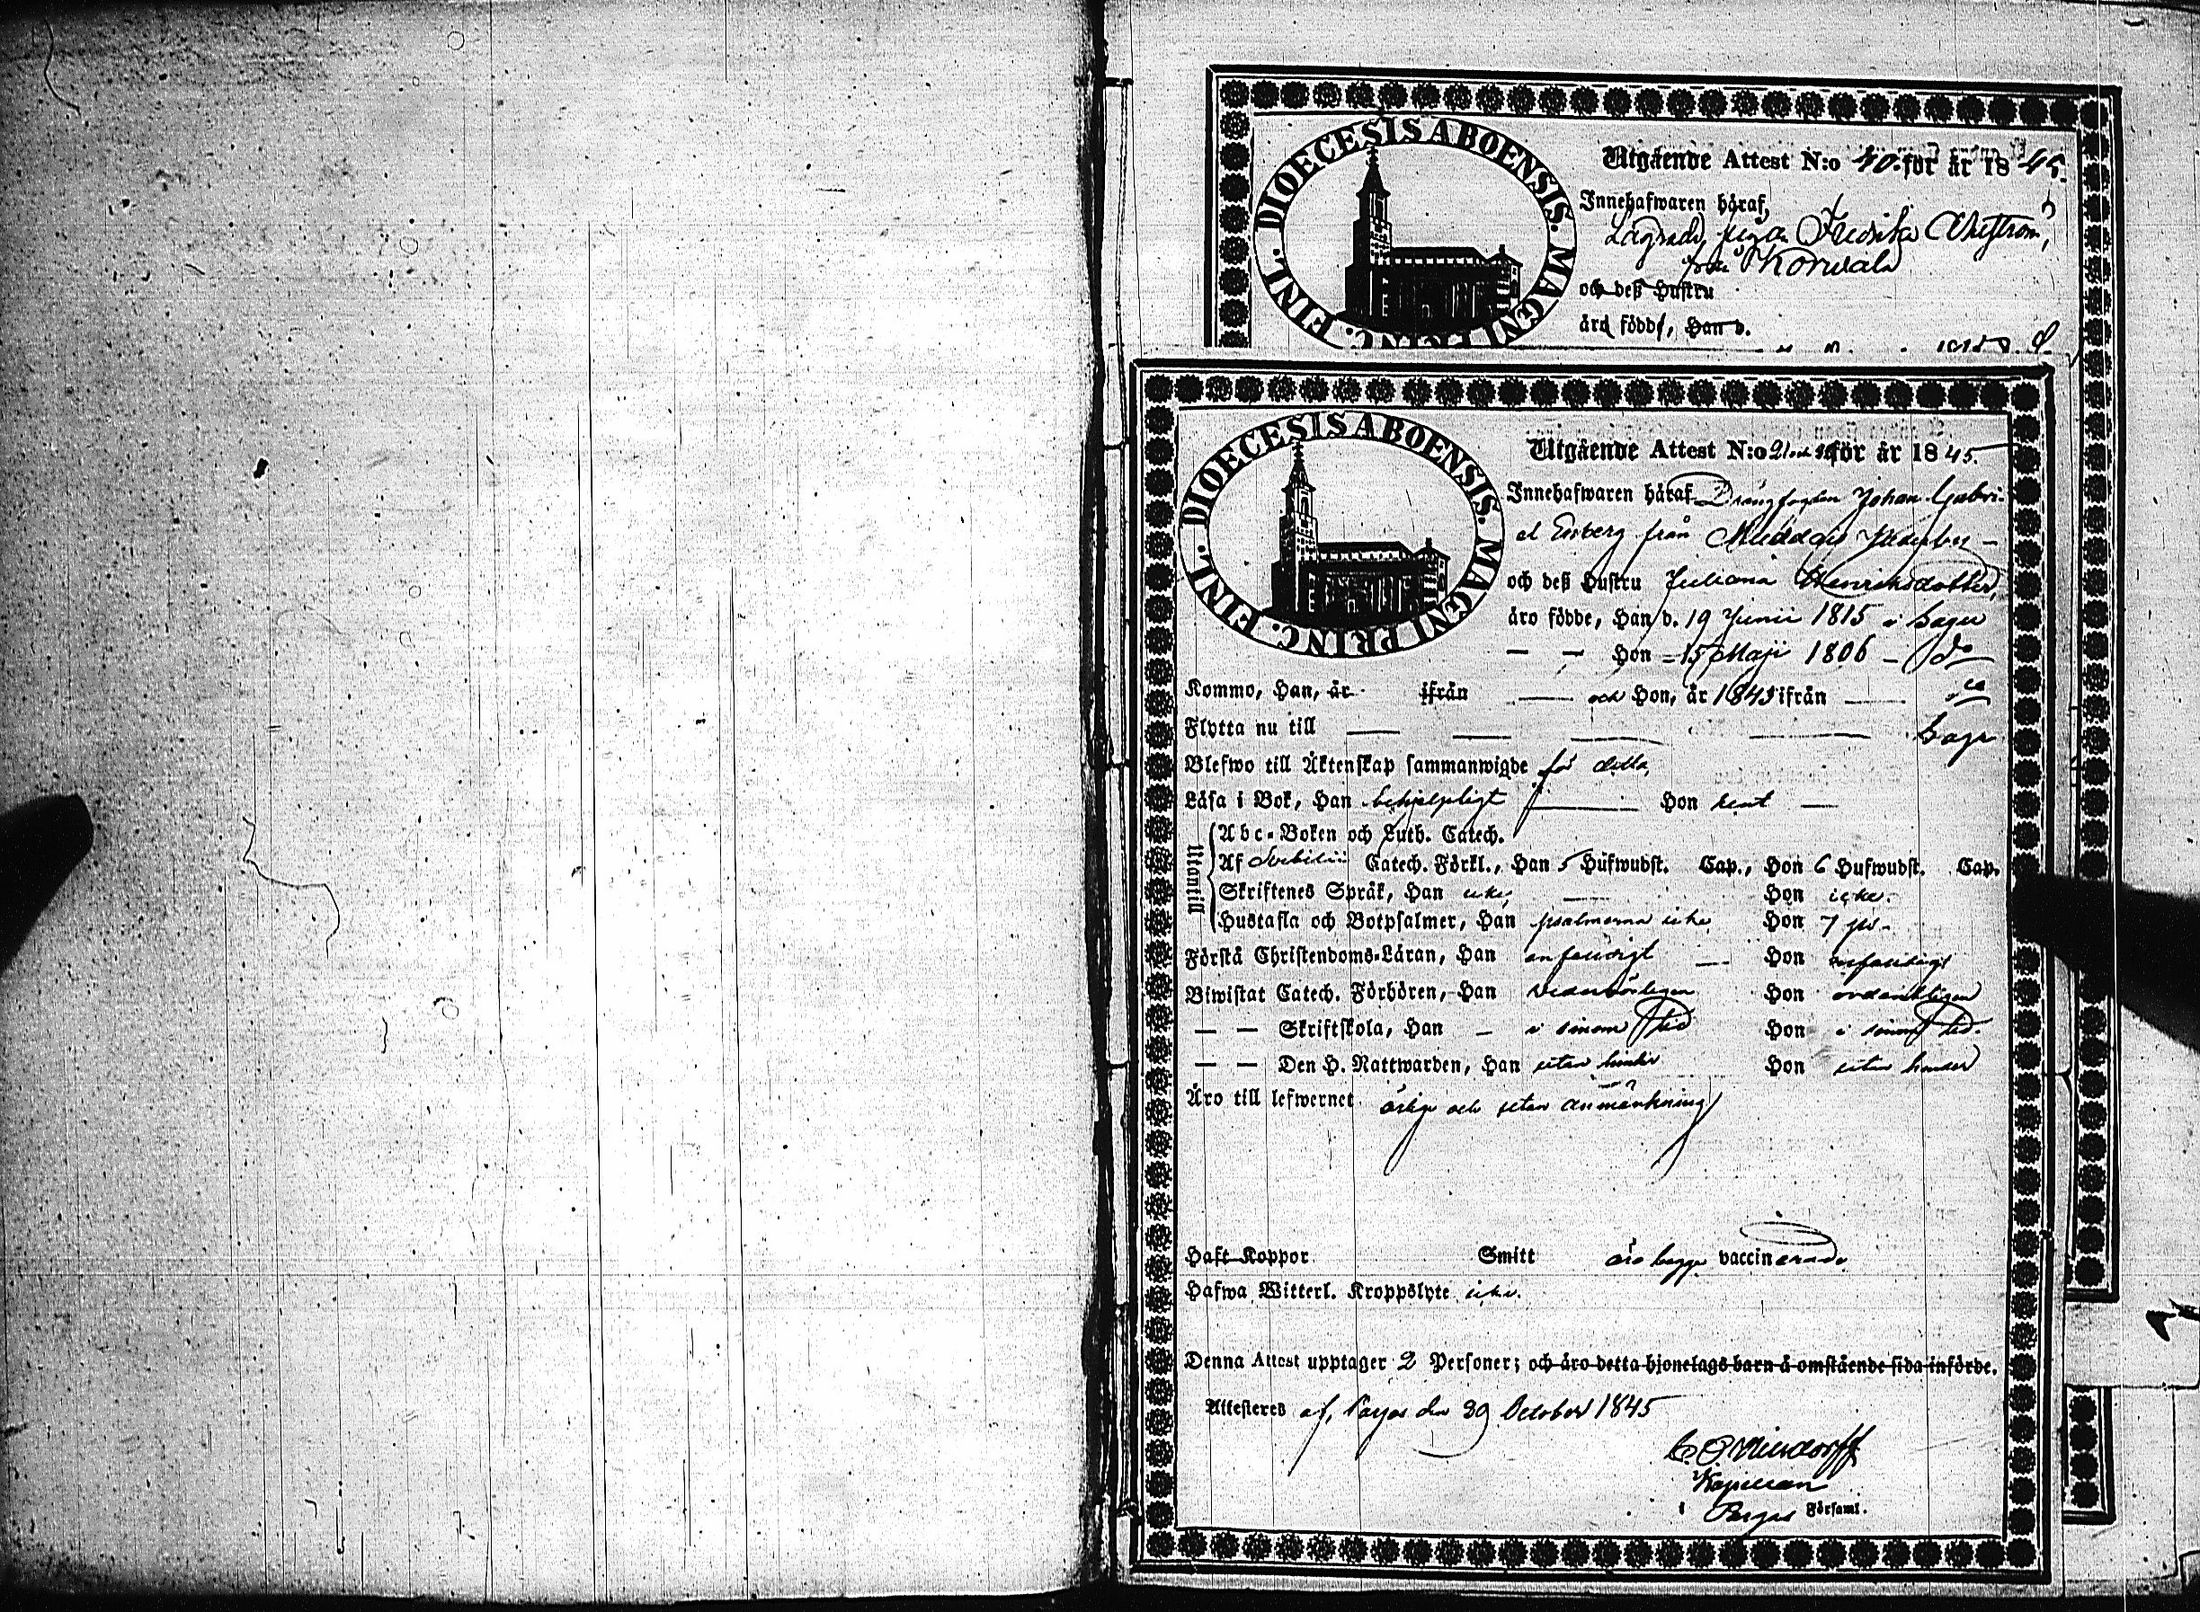 DIOECESIS ABOENSIS. MAGNI PRINC. FINL.
Utgående Attest N:o 40. för år 1845.
Innehafwaren häraf,
pigan Fredrika
från Korvala
och deß Hustru
äro födde, Han d.
DIOECESIS ABOENSIS. MAGNI PRINC. FINL.
Utgående Attest N:o för år 1845.
Innehafwaren häraf Drängfogden Johan Gabri-
el Enberg från
och deß Hustru Juliana Henriksdotter,
äro födde, Han d. 19 Junii 1815 i Sagu
— — Hon - 15 Maji 1806 - do
Kommo, Han, år ifrån — och Hon, år 1845 ifrån —
Flytta nu till — — — — Sagu
Blefwo till Äktenskap sammanwigde för detta,
Läsa i Bok, Han behjelpligt — Hon rent —
Utantill
Abc-Boken och Luth. Catech.
Af Svebilii Catech. Förkl., Han 5 Hufwudst. Cap., Hon 6 Hufwudst. Cap.
Skriftenes Språk, Han icke, — Hon icke.
Hustafla och Botpsalmer, Han psalmerna icke Hon 7 ps.
Förstå Christendoms-Läran, Han enfaldigt — Hon enfaldigt
Biwistat Catech. Förhören, Han Hon ordentligen
— — Skriftskola, Han - i sinom tid Hon i sinom tid.
— — Den H. Nattwarden, Han utan hinder Hon utan hinder
Äro till lefwernet ärlige och utan anmärkning
Haft Koppor Smitt äro begge vaccinerade
Hafwa Witterl. Kroppslyte icke.
Denna Attest upptager 2 Personer; och äro detta hjonelags barn å omstående sida införde.
Attesteres af, Pargas den 29 October 1845
Kapellan
i Pargas Församl.